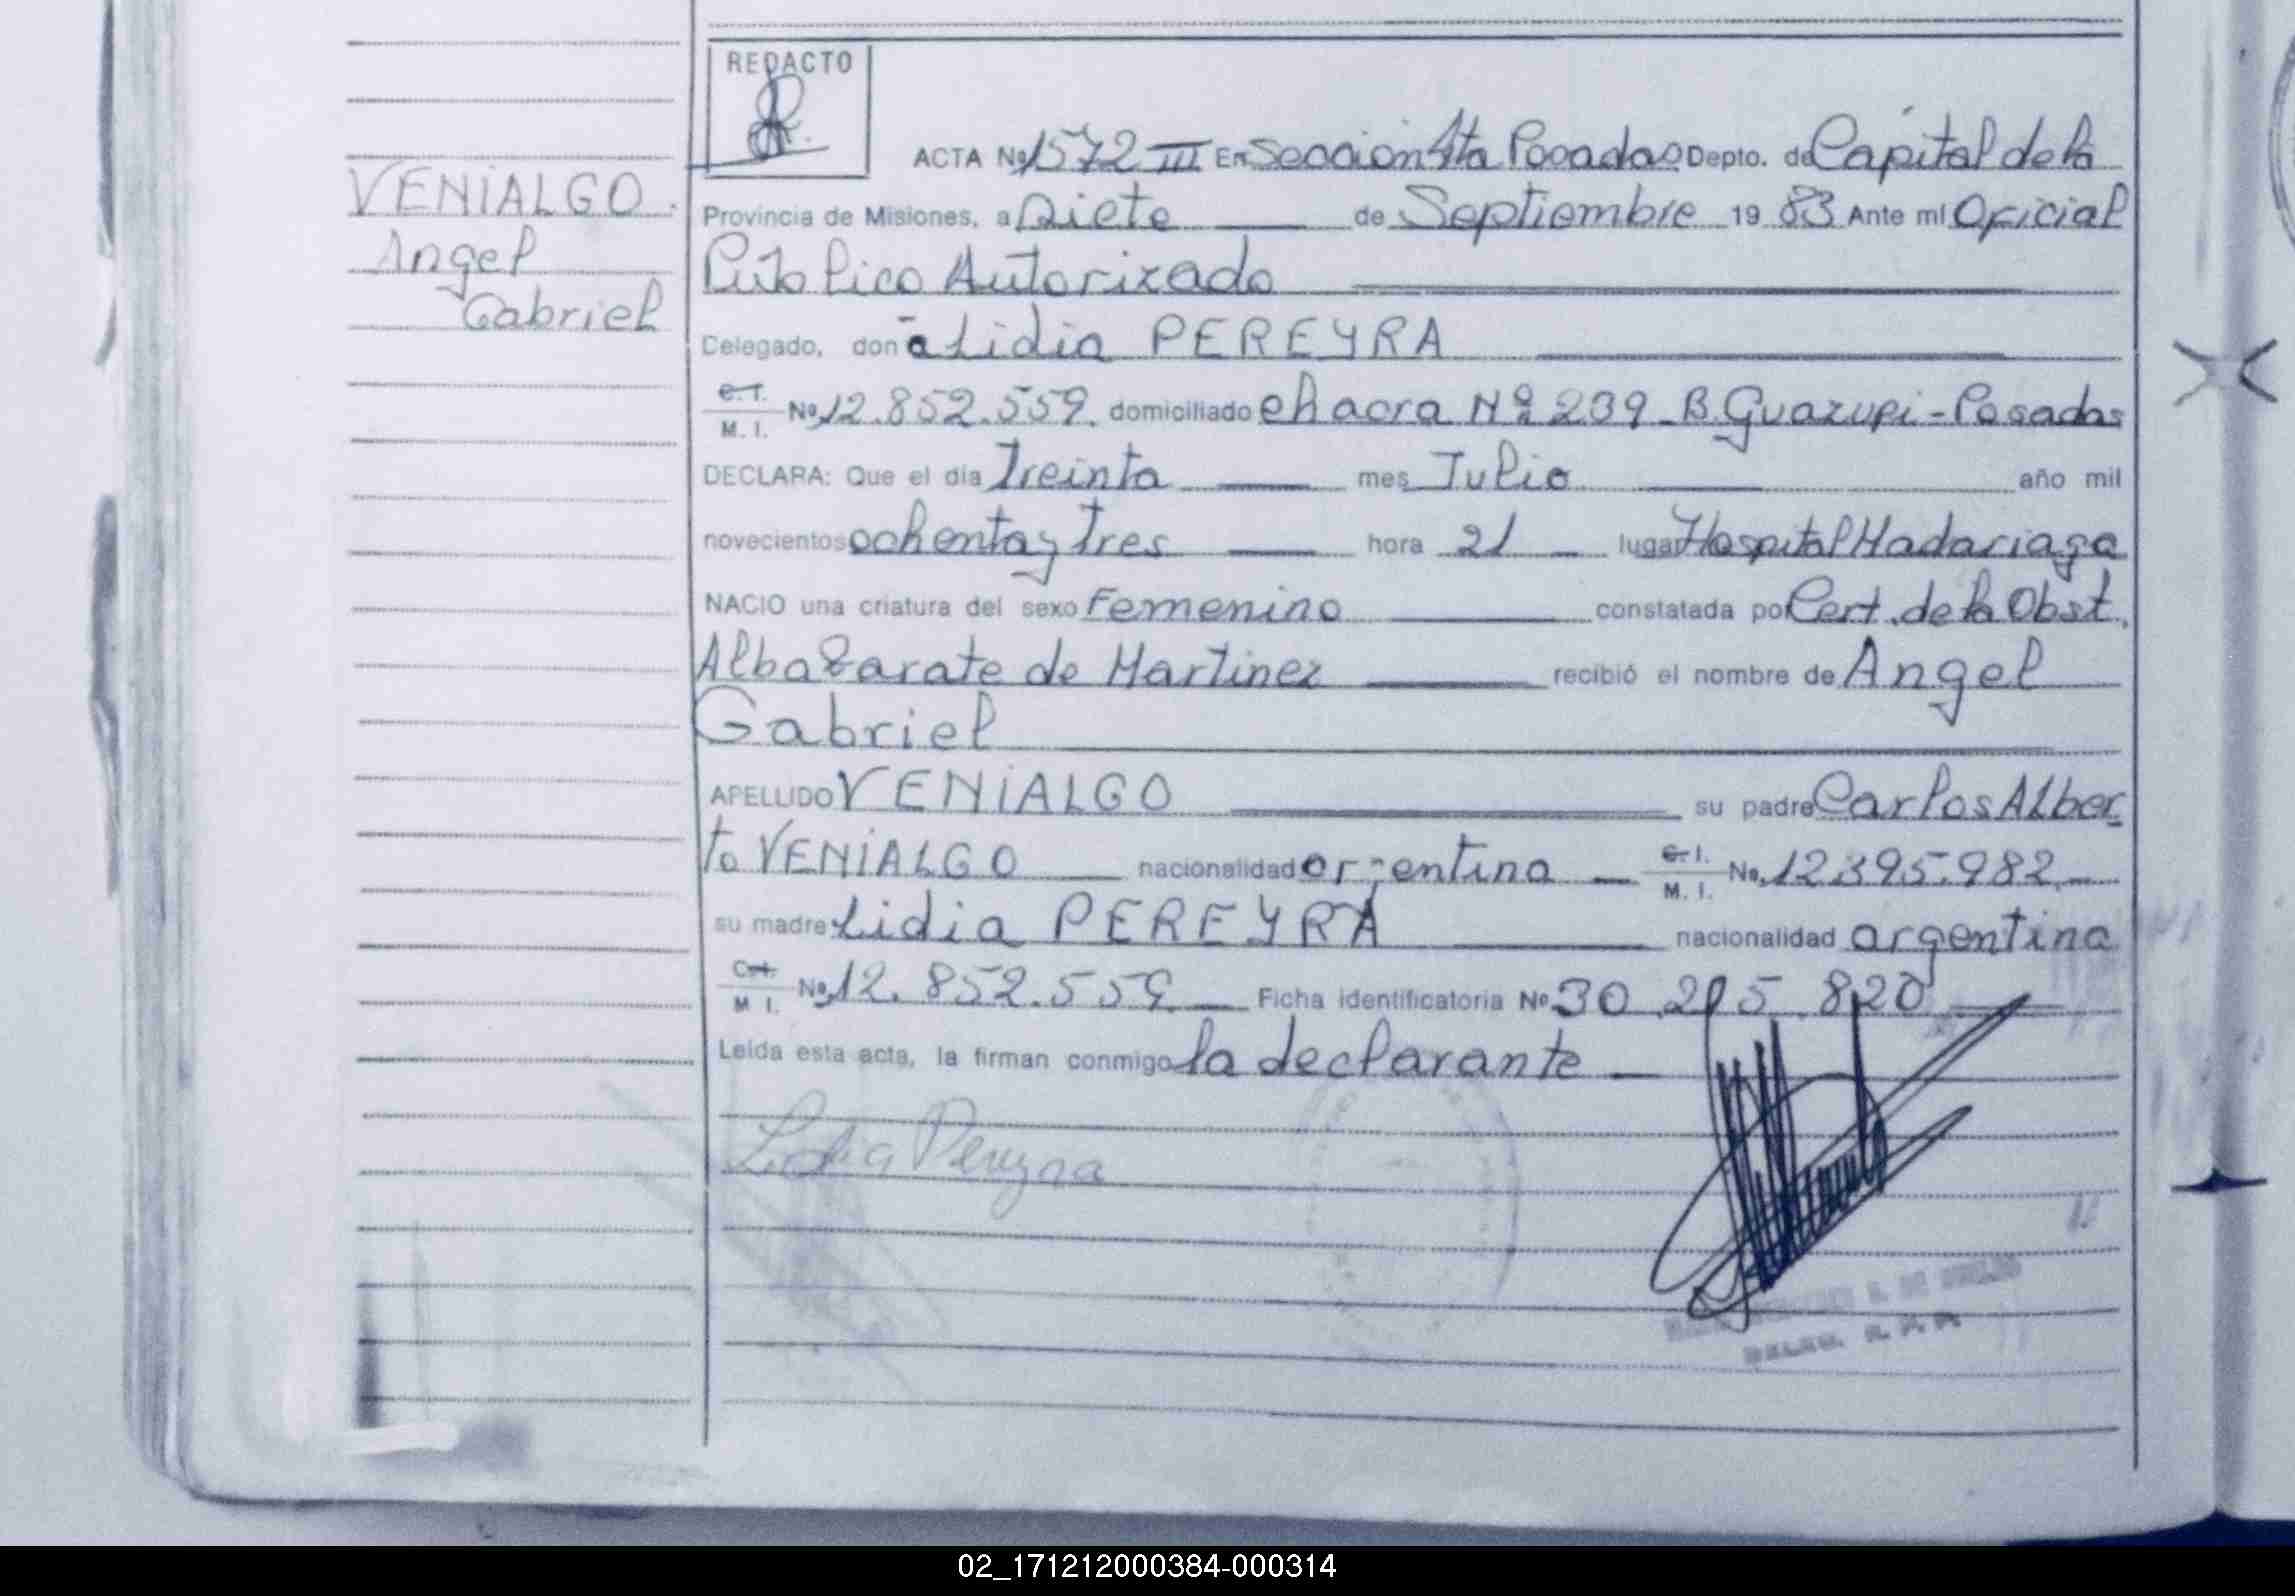 REDACTO
ACTA Nº 1572 III En Sección 4ta Posadas Depto. de Capital de la
VENIALGO
Provincia de Misiones, a Siete de Septiembre 19 83 Ante mí Oficial
Angel
Público Autorizado
Gabriel
Delegado, doña Lidia PEREYRA
C. I.
M. I. Nº 12.852.559. domiciliado chacra Nº 239 - B. Guazupi - Posadas
DECLARA: Que el día Treinta mes Julio año mil
novecientos ochenta y Tres hora 21 lugar Hospital Madariaga
NACIO una criatura del sexo Femenino constatada por Cert. de la Obst.
Alba Zarate de Martinez recibió el nombre de Angel
Gabriel
APELLIDO VENIALGO su padre Carlos Alber
to VENIALGO nacionalidad argentina C. I.
M. I. No. 12395.982
su madre Lidia PEREYRA nacionalidad argentina
C. I.
M. I. Nº 12.852.559 Ficha identificatoria Nº 30.215.820
Leída esta acta, la firman conmigo la declarante
Lidia Pereyra
02_171212000384-000314